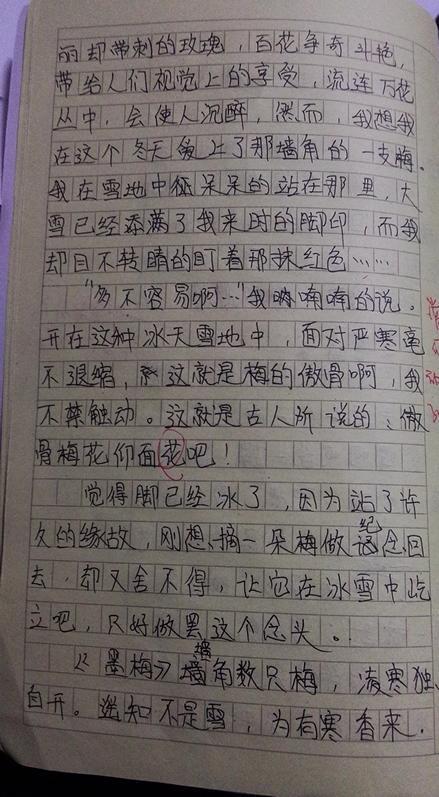 丽却带刺的玫瑰，百花争奇斗艳，
带给人们视觉上的享受，流连万花
丛中，会使人沉醉，然而，我想我
在这个冬天爱上了那墙角的一支梅。
我在雪地中呆呆的站在那里，大
雪已经添满了我来时的脚印，而我
却目不转睛的盯着那抹红色……
“多不容易啊…”我喃喃的说。
开在这种冰天雪地中，面对严寒毫
不退缩，这就是梅的傲骨啊，我
不禁触动。这就是古人所说的、傲
骨梅花仰面花吧！
觉得脚已经冰了，因为站了许
久的缘故，刚想摘一朵梅做纪念回
去，却又舍不得，让它在冰雪中屹
立吧，只好做罢这个念头。
《墨梅》墙角数只梅，凌寒独
自开。遥知不是雪，为有寒香来.